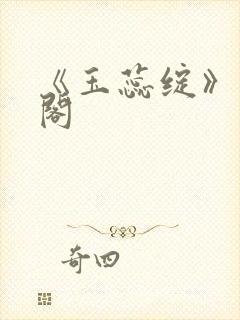 《玉蕊绽》
阁
奇四